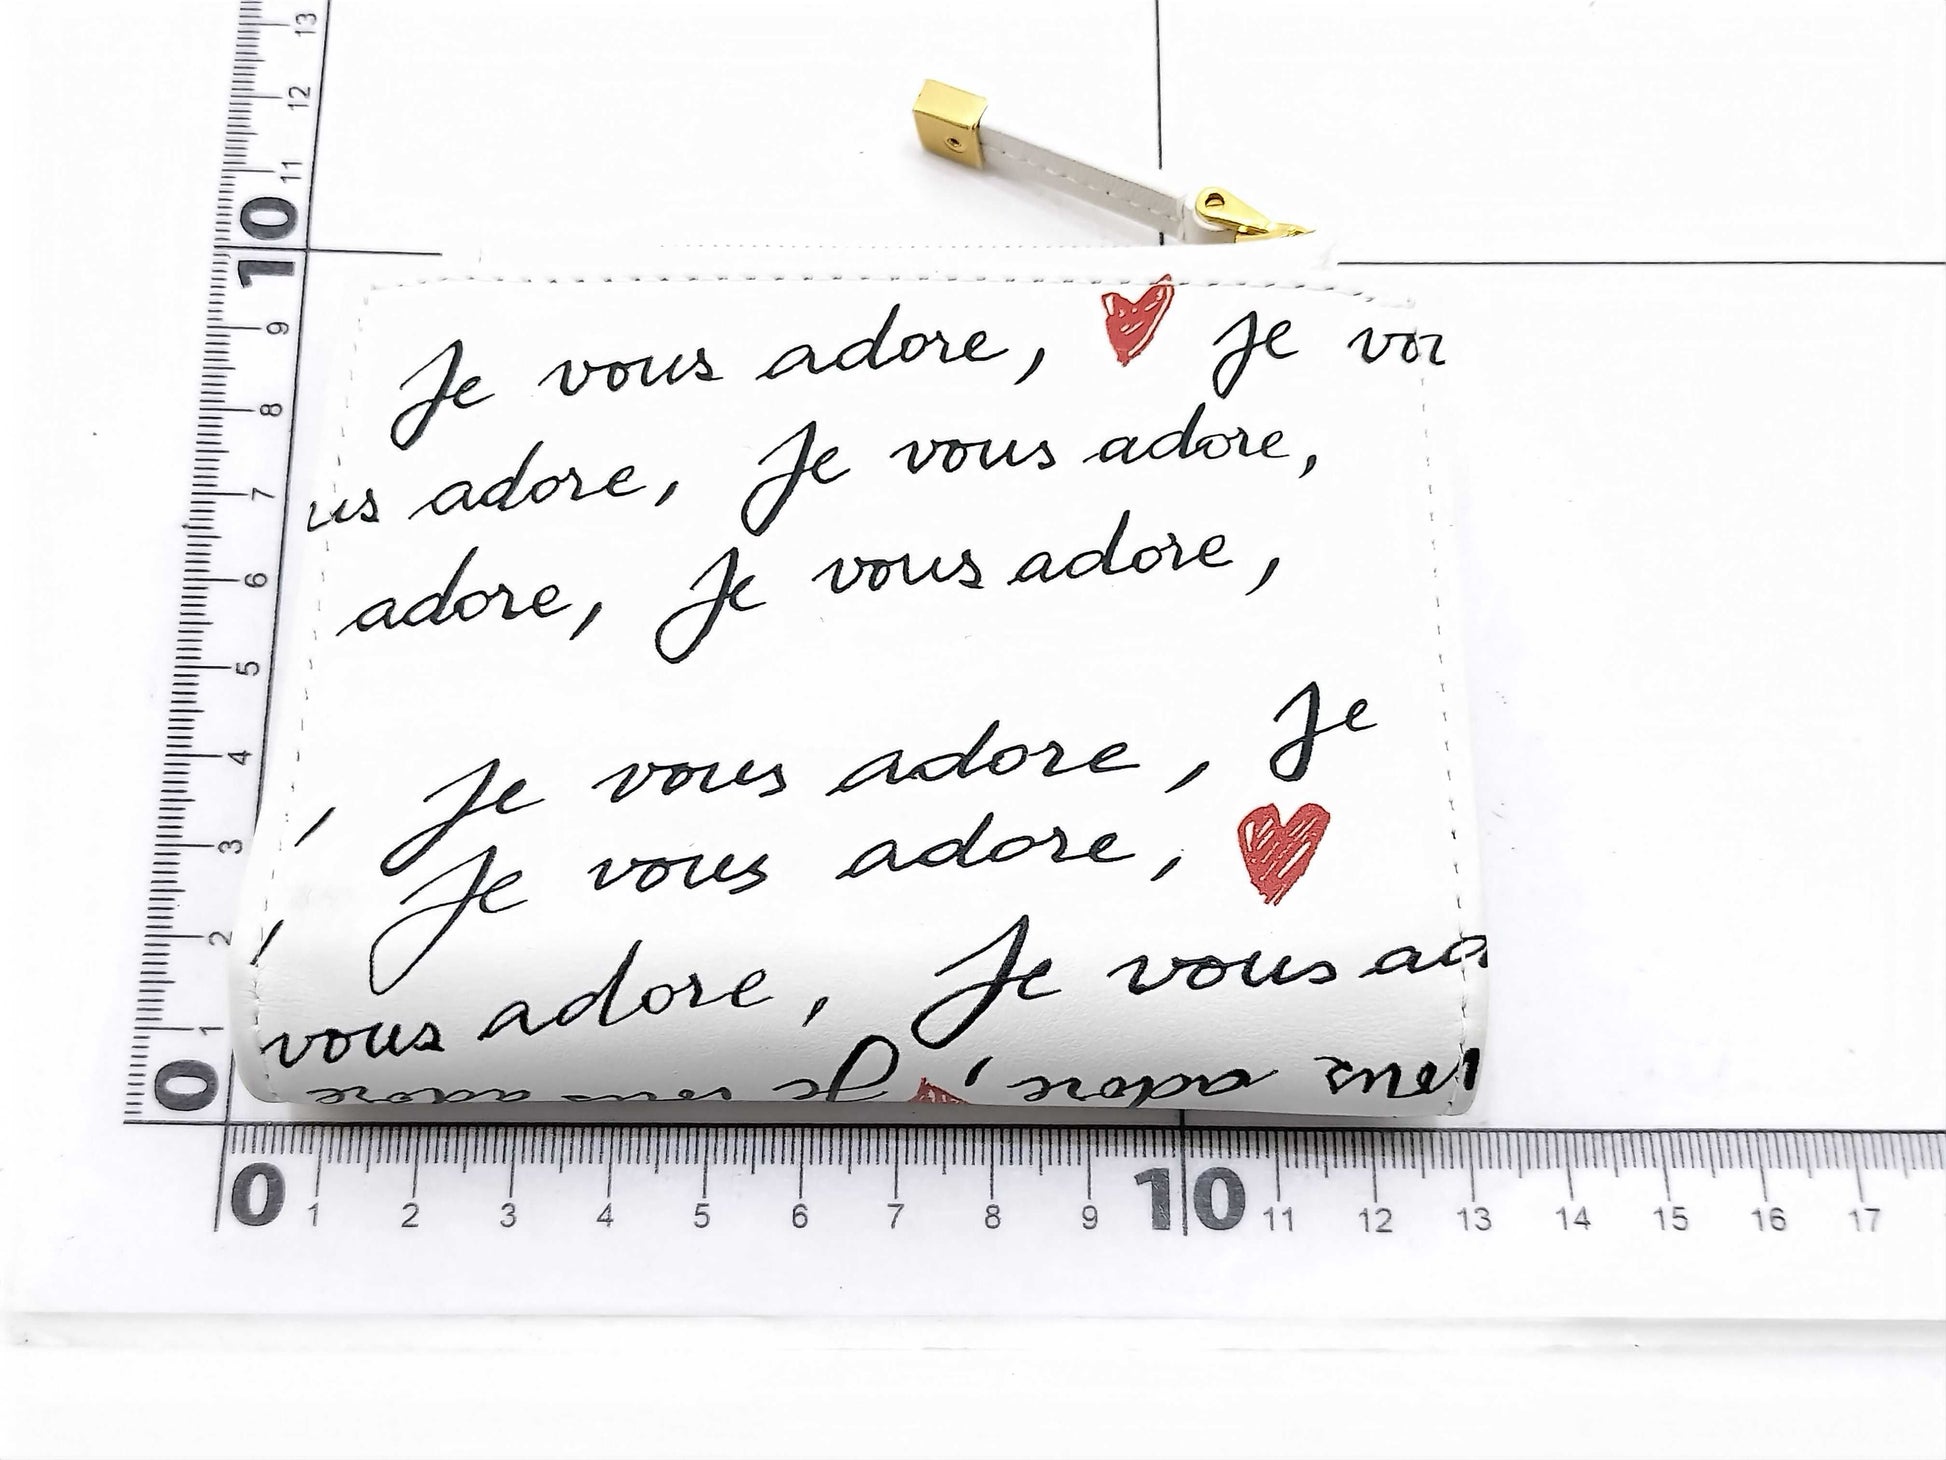 13
12
11
10
9
8
7
6
5
4
3
2
1
0
Je vous adore, Je vou
us adore, Je vous adore,
adore, Je vous adore,
, Je vous adore, Je
, Je vous adore,
vous adore, Je vous ad
ous adore, Je vous adore
0 1 2 3 4 5 6 7 8 9 10 11 12 13 14 15 16 17